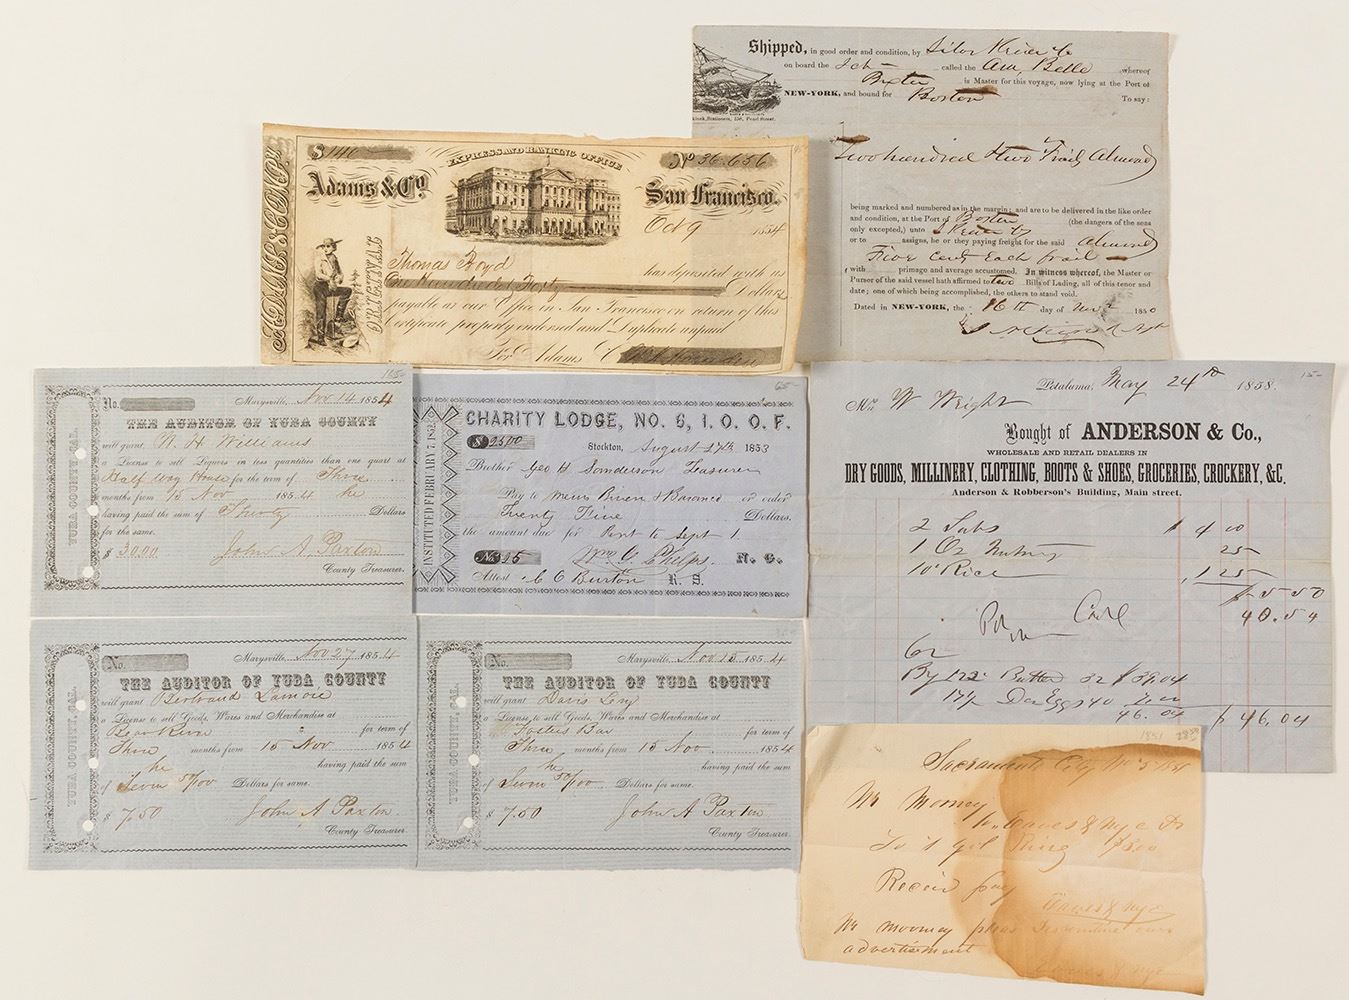 Shipped, in good order and condition, by
on board the Sch called the Ann Belle whereof
Baxter is Master for this voyage, now lying at the Port of
NEW-YORK, and bound for Boston To say:
Stationers, 156, Pearl Street.
Two hundred & two Frails Almond
being marked and numbered as in the margin; and are to be delivered in the like order
and condition, at the Port of Boston (the dangers of the seas
only excepted,) unto
or to assigns, he or they paying freight for the said Almond
Five Cents Each frail
with primage and average accustomed. In witness whereof, the Master or
Purser of the said vessel hath affirmed to two Bills of Lading, all of this tenor and
date; one of which being accomplished, the others to stand void.
Dated in NEW-YORK, the 16th day of 1850
ADAMS & CO.
$ 140 EXPRESS AND BANKING OFFICE No 36.656
Adams & Co. San Francisco.
Oct 9 1854
ORIGINAL
Thomas Boyd has deposited with us
One hundred & Forty Dollars
payable at our Office in San Francisco on return of this
Certificate properly endorsed and Duplicate unpaid
For Adams & Co
165-
YUBA COUNTY, CAL.
No. Marysville, Nov 14 1854
THE AUDITOR OF YUBA COUNTY
will grant R. H. Williams
a License to sell Liquors in less quantities than one quart at
Half Way House for the term of Three
months from 15 Nov 1854 he
having paid the sum of Thirty Dollars
for the same.
$ 30.00 John A. Paxton
County Treasurer.
65-
INSTITUTED FEBRUARY 7, 1852.
CHARITY LODGE, NO. 6, I. O. O. F.
$ 25.00 Stockton, August 27th 1853
Brother Geo H Sanderson Treasurer
Pay to Messrs or order
Twenty Five Dollars,
the amount due for Rent to Sept 1.
No. Wm G. Phelps. N. G.
Attest C E Burton R. S.
15-
Petaluma, May 24th 1858.
W Wright
Bought of ANDERSON & Co.,
WHOLESALE AND RETAIL DEALERS IN
DRY GOODS, MILLINERY, CLOTHING, BOOTS & SHOES, GROCERIES, CROCKERY, &C.
Anderson & Robberson's Building, Main street.
2 Tubs $ 4 00
1 Oz Nutmeg 25
10# Rice 1 25
$ 5 50
40.54
Cr
By Butter 32 $ 39.04
17½ Doz Eggs 40 7.00
46.04 $ 46.04
YUBA COUNTY, CAL.
No. Marysville, Nov 27 1854
THE AUDITOR OF YUBA COUNTY
will grant Bertrand Lamore
a License to sell Goods, Wares and Merchandise at
Bear River for term of
Three months from 15 Nov 1854
he having paid the sum
of Seven 50/100 Dollars for same.
$ 7.50 John A Paxton
County Treasurer
YUBA COUNTY, CAL.
No. Marysville, Nov 15 1854
THE AUDITOR OF YUBA COUNTY
will grant Davis Levy
a License to sell Goods, Wares and Merchandise at
Fosters Bar for term of
Three months from 15 Nov 1854
he having paid the sum
of Seven 50/100 Dollars for same.
$ 7.50 John A Paxton
County Treasurer
1851
Sacramento City
Mr Mooney
To
Mr Mooney please
advertisement